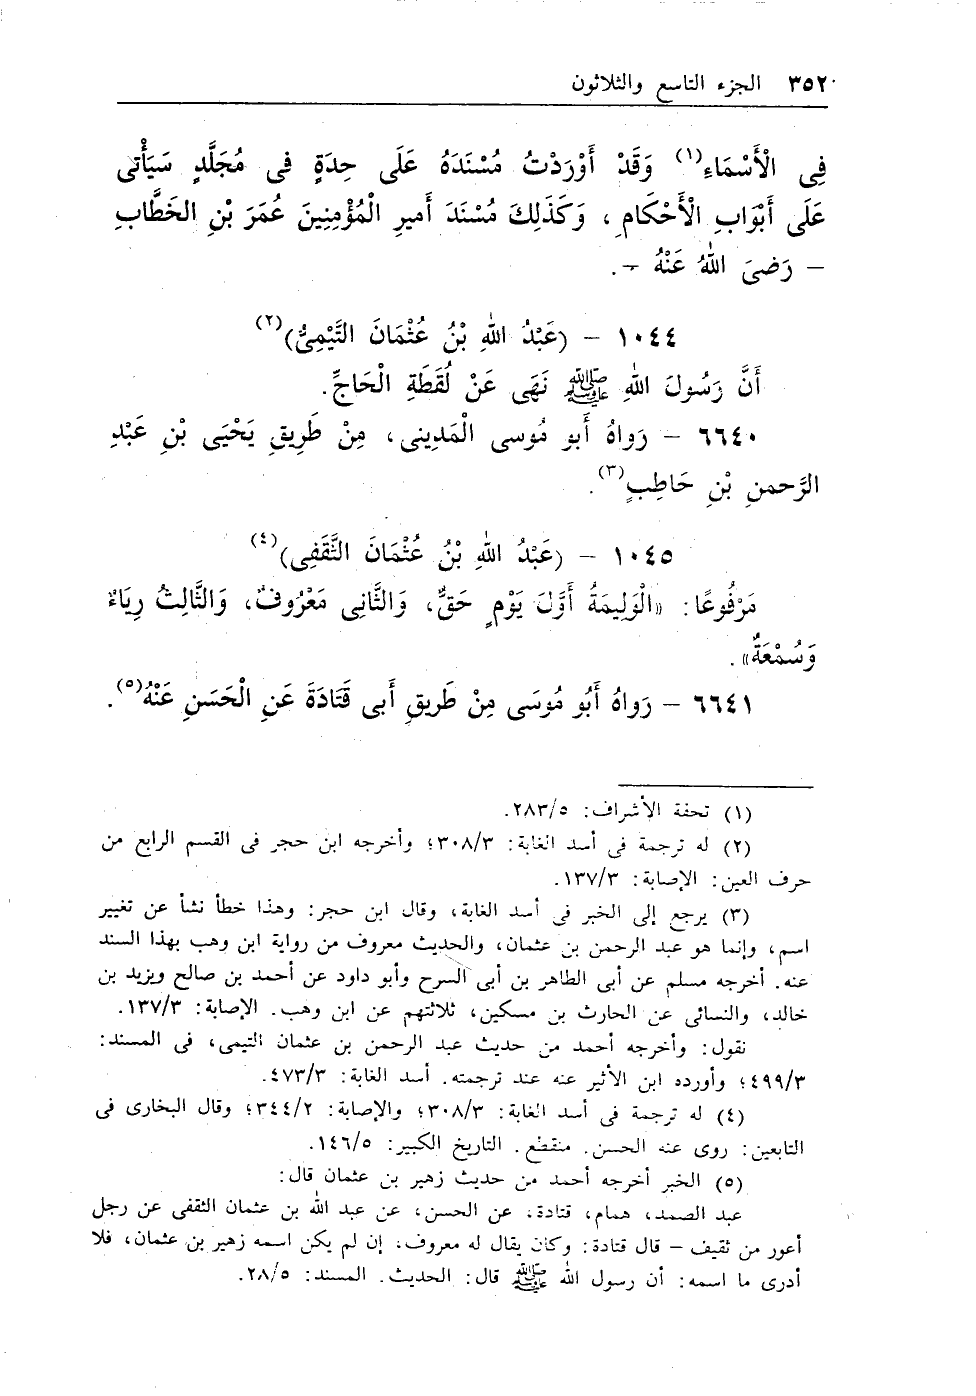 ٣٥٢ الجزء التاسع والثلاثون
فِي الْأَسْمَاءِ(١) وَقَدْ أَوْرَدْتُ مُسْنَدَهُ عَلَى حِدَةٍ فى مُجَلَّدٍ سَيَأْتى
عَلَى أَبْوَابِ الْأَحْكَامِ ، وَكَذَلِكَ مُسْنَدَ أَميرِ الْمُؤْمِنِينَ عُمَرَ بْنِ الخَطَّابِ
– رَضىَ اللهُ عَنْهُ –.
١٠٤٤ – (عَبْدُ اللهِ بْنُ عُثْمَانَ التَّيْمِىُّ)(٢)
أَنَّ رَسُولَ اللهِ ﷺ نَهَى عَنْ لُقَطَةِ الْحَاجِّ.
٦٦٤٠ – رَواهُ أَبو مُوسى الْمَدِينى، مِنْ طَرِيقِ يَحْيَى بْنِ عَبْدِ
الرَّحمنِ بْنِ حَاطِبٍ(٣).
١٠٤٥ – (عَبْدُ اللهِ بْنُ عُثْمَانَ الثَّقَفِى)(٤)
مَرْفُوعًا: «الْوَلِيمَةُ أَوَّلَ يَوْمٍ حَقٌّ، وَالثَّانِى مَعْرُوفٌ، وَالثَّالِثُ رِيَاءٌ
وَسُمْعَةٌ».
٦٦٤١ – رَواهُ أَبُو مُوسَى مِنْ طَرِيقِ أَبى قَتَادَةَ عَنِ الْحَسَنِ عَنْهُ(٥).
(١) تحفة الأشراف: ٢٨٣/٥.
(٢) له ترجمة فى أسد الغابة: ٣٠٨/٣؛ وأخرجه ابن حجر فى القسم الرابع من
حرف العين: الإصابة: ١٣٧/٣.
(٣) يرجع إلى الخبر فى أسد الغابة، وقال ابن حجر: وهذا خطأ نشأ عن تغيير
اسم، وإنما هو عبد الرحمن بن عثمان، والحديث معروف من رواية ابن وهب بهذا السند
عنه. أخرجه مسلم عن أبى الطاهر بن أبى السرح وأبو داود عن أحمد بن صالح ويزيد بن
خالد، والنسائى عن الحارث بن مسكين، ثلاثتهم عن ابن وهب. الإصابة: ١٣٧/٣.
نقول: وأخرجه أحمد من حديث عبد الرحمن بن عثمان التيمى، فى المسند:
٤٩٩/٣؛ وأورده ابن الأثير عنه عند ترجمته. أسد الغابة: ٤٧٣/٣.
(٤) له ترجمة فى أسد الغابة: ٣٠٨/٣؛ والإصابة: ٣٤٤/٢؛ وقال البخارى فى
التابعين: روى عنه الحسن. منقطع. التاريخ الكبير: ١٤٦/٥.
(٥) الخبر أخرجه أحمد من حديث زهير بن عثمان قال:
عبد الصمد، همام، قتادة، عن الحسن، عن عبد الله بن عثمان الثقفى عن رجل
أعور من ثقيف – قال قتادة: وكان يقال له معروف، إن لم يكن اسمه زهير بن عثمان، فلا
أدرى ما اسمه: أن رسول الله ﷺ قال: الحديث. المسند: ٢٨/٥.